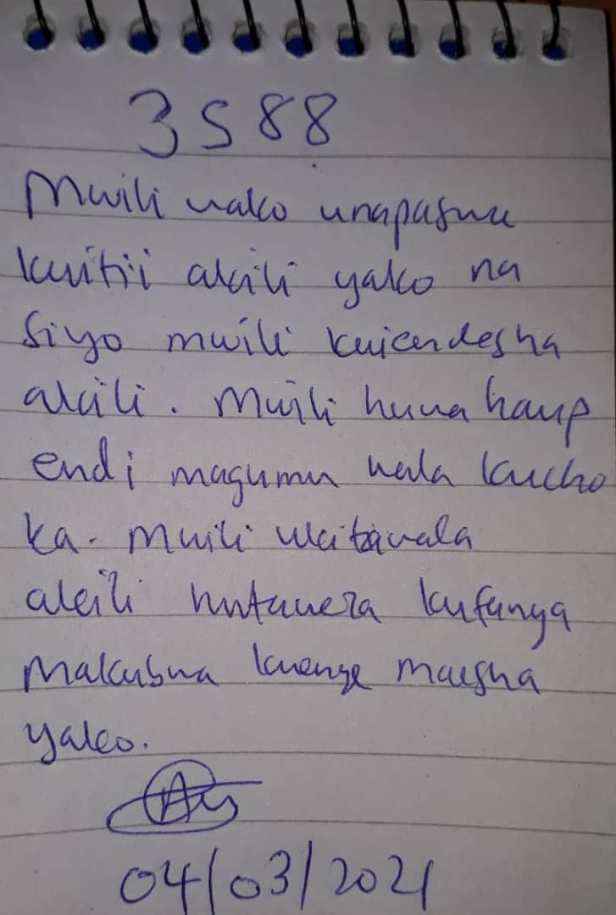 3588
Mwili wako unapaswa
kuitii akili yako na
siyo mwili kuiendesha
akili. Mwili huwa haup
endi magumu wala kucho
ka. Mwili ukitawala
akili hutaweza kufanya
makubwa kwenye maisha
yako.
04/03/2021